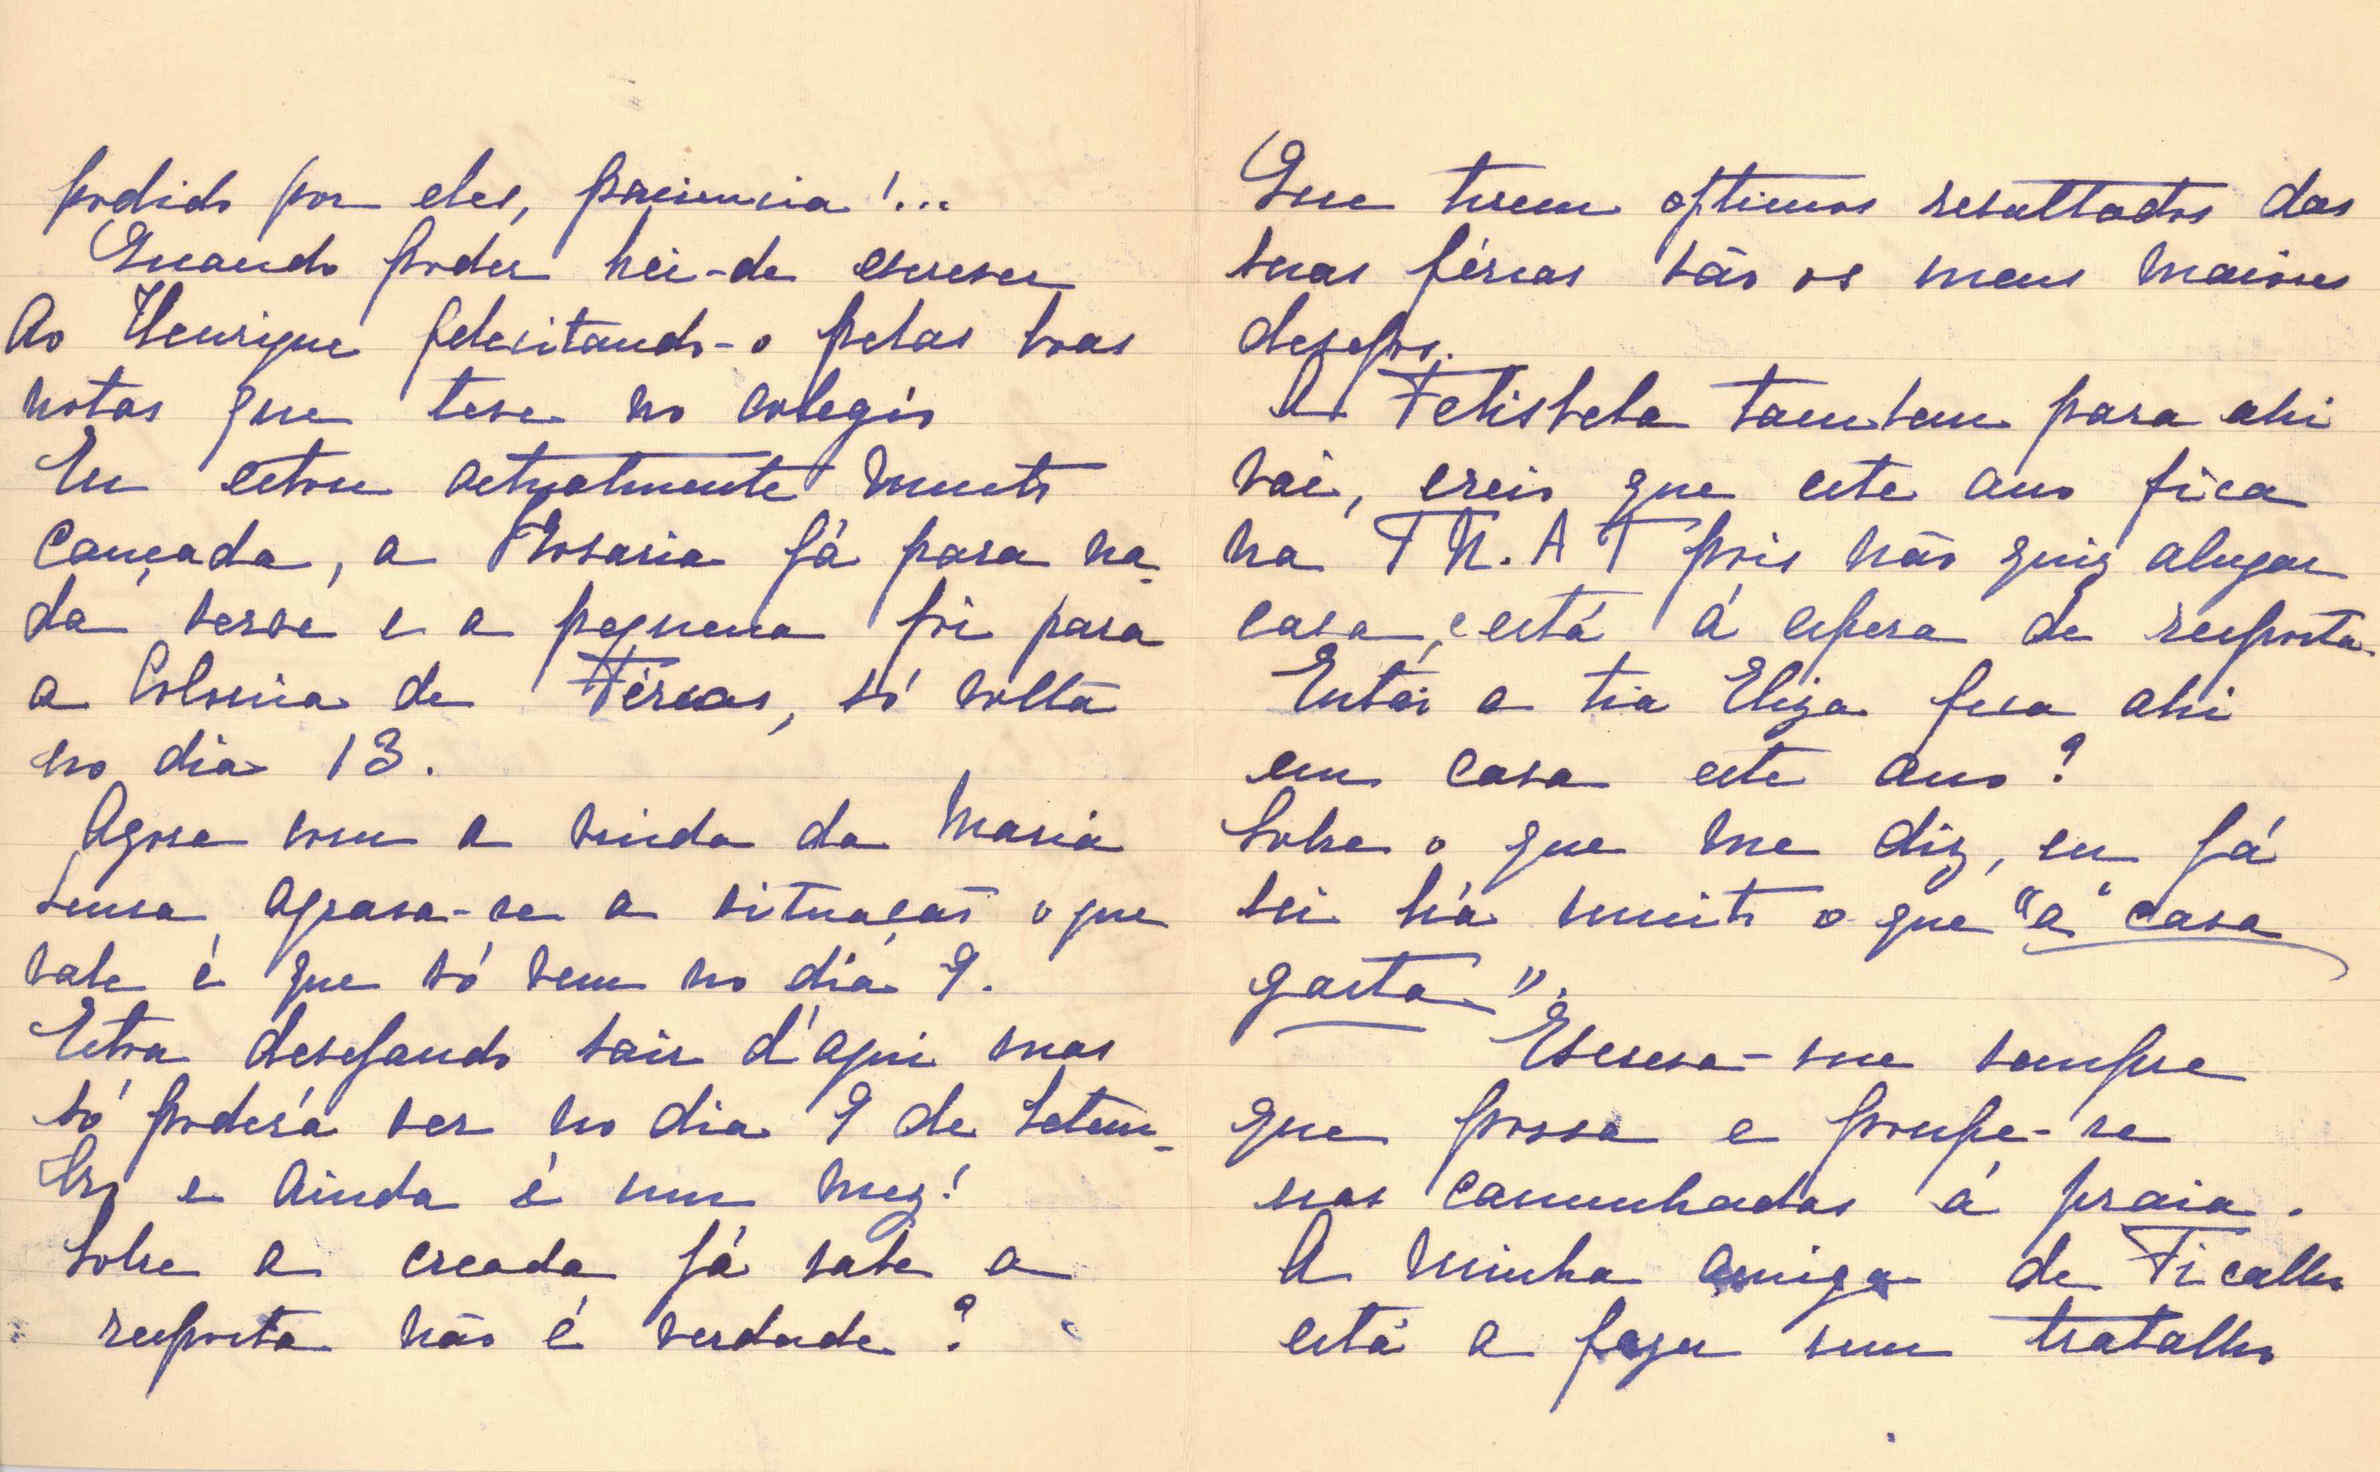 podido por eles, paciencia!...
Quando poder hei-de escrever
ao Henrique felecitando-o pelas boas
notas que teve no colegio
Eu estou actualmente muito
cançada, a Rosaria já para na-
da serve e a pequena foi para
a Colonia de Férias, só volta
no dia 13.
Agora com a vinda da Maria
Luisa, agrava-se a situação o que
vale é que só vem no dia 9.
Estou desejando sair d'aqui mas
só poderá ser no dia 9 de Setem-
bro e ainda é um mez!
Sobre a creada já sabe a
resposta não é verdade?
Que tirem optimos resultados das
suas férias são os meus maiores
desejos.
A Felisbela tambem para ahi
vai, creio que este ano fica
na F N. A T pois não quiz alugar
casa, e está á espera de resposta.
Então a tia Eliza fica ahi
em casa este ano?
Sobre o que me diz, eu já
sei há muito o que "a casa
gasta".
Escreva-me sempre
que possa e poupe-se
nas caminhadas á praia.
A minha amiga de Ficalho
está a fazer um trabalho